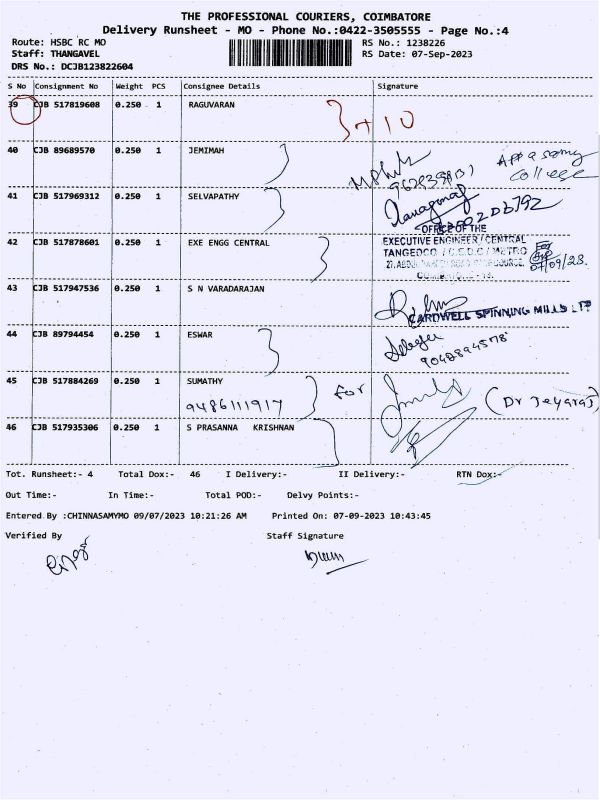 THE PROFESSIONAL COURIERS, COIMBATORE
Delivery Runsheet - MO - Phone No.:0422-3505555 - Page No.:4
Route: HSBC RC MO
RS No.: 1238226
Staff: THANGAVEL
RS Date: 07-Sep-2023
DRS No.: DCJB123822604
S No Consignment No Weight PCS Consignee Details Signature
39 CJB 517819608 0.250 1 RAGUVARAN
+10
40 CJB 89689570 0.250 1 JEMIMAH
College
41 CJB 517969312 0.250 1 SELVAPATHY
OFFICE OF THE
42 CJB 517878601 0.250 1 EXE ENGG CENTRAL
EXECUTIVE ENGINEER / CENTRAL
TANGEDCO / C.E.D.C / METRO
07/09/23.
43 CJB 517947536 0.250 1 S N VARADARAJAN
CARDWELL SPINNING MILLS
44 CJB 89794454 0.250 1 ESWAR
9048894578
45 CJB 517884269 0.250 1 SUMATHY
9486111917 for (Dr Jeyaraj)
46 CJB 517935306 0.250 1 S PRASANNA KRISHNAN
Tot. Runsheet:- 4 Total Dox:- 46 I Delivery:- II Delivery:- RTN Dox:-
Out Time:- In Time:- Total POD:- Delvy Points:-
Entered By :CHINNASAMYMO 09/07/2023 10:21:26 AM Printed On: 07-09-2023 10:43:45
Verified By Staff Signature